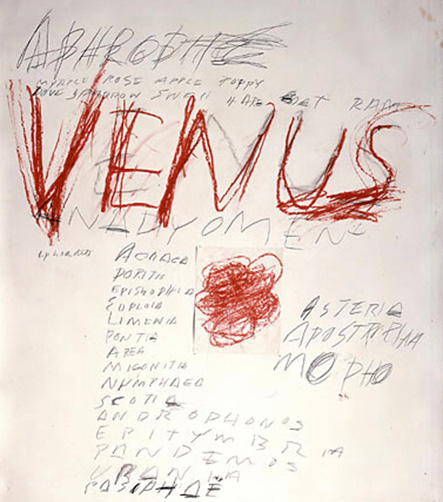 APHRODITE
MYRTLE ROSE APPLE POPPY
DOVE SPARROW SWEN HARE RAM
VENUS
ANADYOMENE
ACRAEA
DORITIS
EPISTROPHIA
EUPLOIA
LIMENIA
PONTIA
AREA
MIGONITIS
NYMPHAEA
SCOTIA
ANDROPHONOS
EPITYMBRIA
PANDEMOS
URANIA
PASIPHAE
ASTERIA
APOSTRPHIA
MOPHO